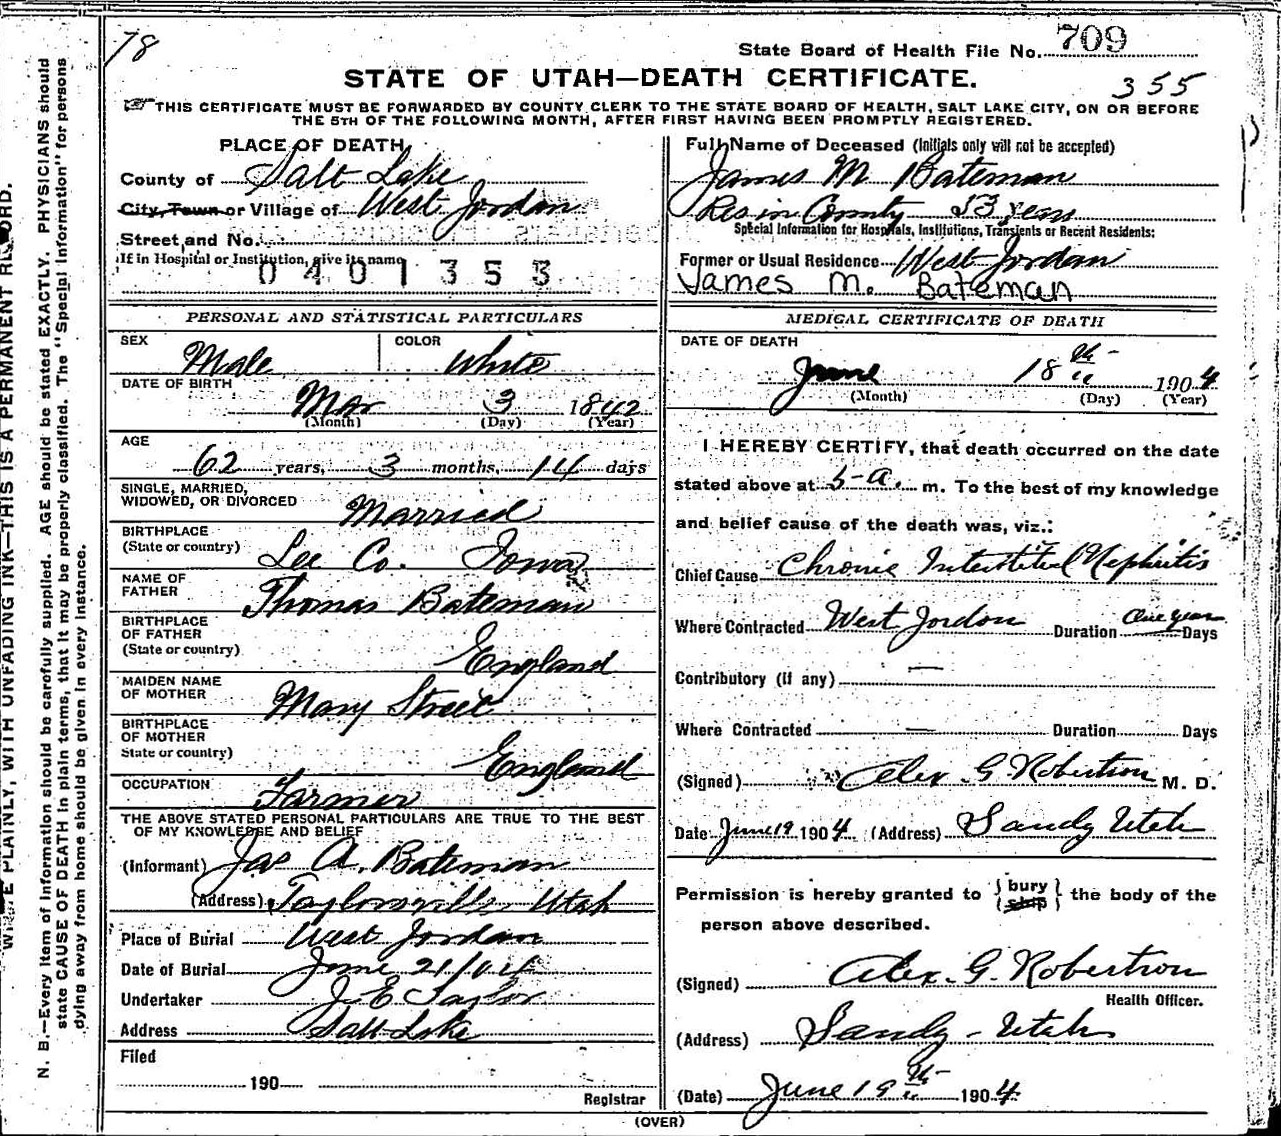 78
State Board of Health File No. 709
STATE OF UTAH—DEATH CERTIFICATE.
355
THIS CERTIFICATE MUST BE FORWARDED BY COUNTY CLERK TO THE STATE BOARD OF HEALTH, SALT LAKE CITY, ON OR BEFORE
THE 5TH OF THE FOLLOWING MONTH, AFTER FIRST HAVING BEEN PROMPTLY REGISTERED.
PLACE OF DEATH
County of Salt Lake
City, Town or Village of West Jordan
Street and No.
If in Hospital or Institution, give its name
0401353
Full Name of Deceased (Initials only will not be accepted)
James M Bateman
Res in County 53 years
Special Information for Hospitals, Institutions, Transients or Recent Residents:
Former or Usual Residence West Jordan
James M. Bateman
PERSONAL AND STATISTICAL PARTICULARS
SEX Male
COLOR White
DATE OF BIRTH
Mar 3 1842
(Month) (Day) (Year)
AGE
62 years, 3 months, 14 days
SINGLE, MARRIED,
WIDOWED, OR DIVORCED Married
BIRTHPLACE
(State or country) Lee Co. Iowa
NAME OF
FATHER Thomas Bateman
BIRTHPLACE
OF FATHER
(State or country) England
MAIDEN NAME
OF MOTHER Mary Street
BIRTHPLACE
OF MOTHER
State or country) England
OCCUPATION Farmer
THE ABOVE STATED PERSONAL PARTICULARS ARE TRUE TO THE BEST
OF MY KNOWLEDGE AND BELIEF
(Informant) Jas A. Bateman
(Address) Taylorsville Utah
Place of Burial West Jordan
Date of Burial June 21/04
Undertaker J. E Taylor
Address Salt Lake
Filed
190
Registrar
MEDICAL CERTIFICATE OF DEATH
DATE OF DEATH
June 18th 1904
(Month) (Day) (Year)
I HEREBY CERTIFY, that death occurred on the date
stated above at 5-a. m. To the best of my knowledge
and belief cause of the death was, viz.:
Chief Cause Chronic Interstitial Nephritis
Where Contracted West Jordon Duration One year Days
Contributory (if any) —
Where Contracted — Duration Days
(Signed) Alex G Robertson M. D.
Date June 19 1904 (Address) Sandy Utah
Permission is hereby granted to { bury ship } the body of the
person above described.
(Signed) Alex. G. Robertson
Health Officer.
(Address) Sandy - Utah
(Date) June 19th 1904
(OVER)
PLAINLY, WITH UNFADING INK—THIS IS A PERMANENT RECORD.
N. B.—Every item of information should be carefully supplied. AGE should be stated EXACTLY. PHYSICIANS should
state CAUSE OF DEATH in plain terms, that it may be properly classified. The "Special Information" for persons
dying away from home should be given in every instance.